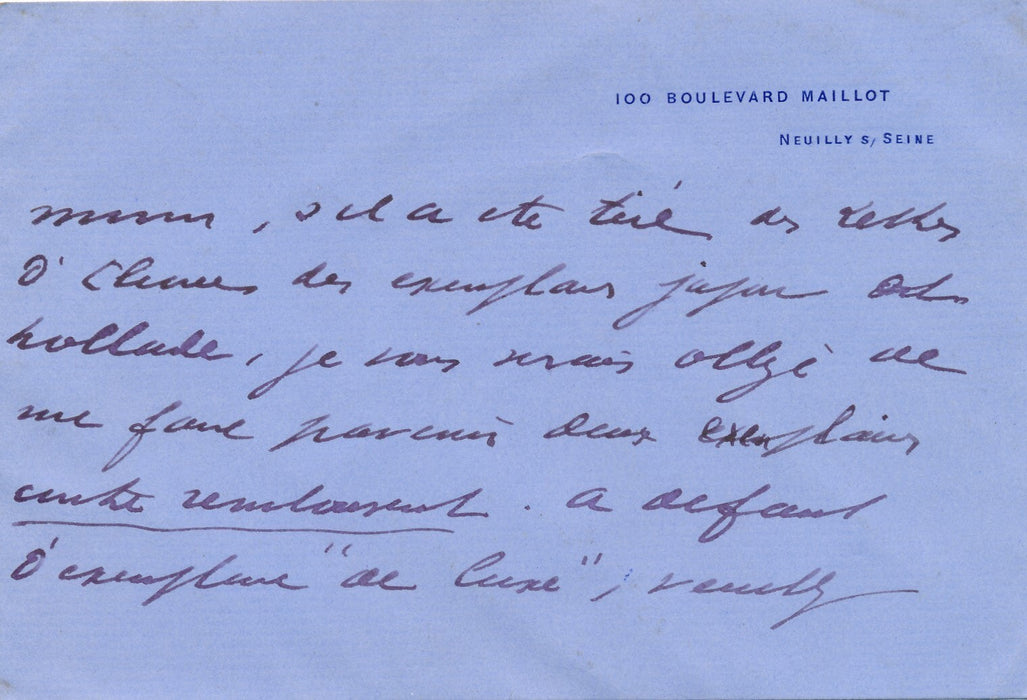 100 BOULEVARD MAILLOT
NEUILLY S/ SEINE
, s'il a été tiré des Lettres
d' des exemplaires japon ou
hollande, je vous serais obligé de
me faire parvenir deux exemplaires
contre remboursement. A défaut
d'exemplaire "de luxe", veuillez